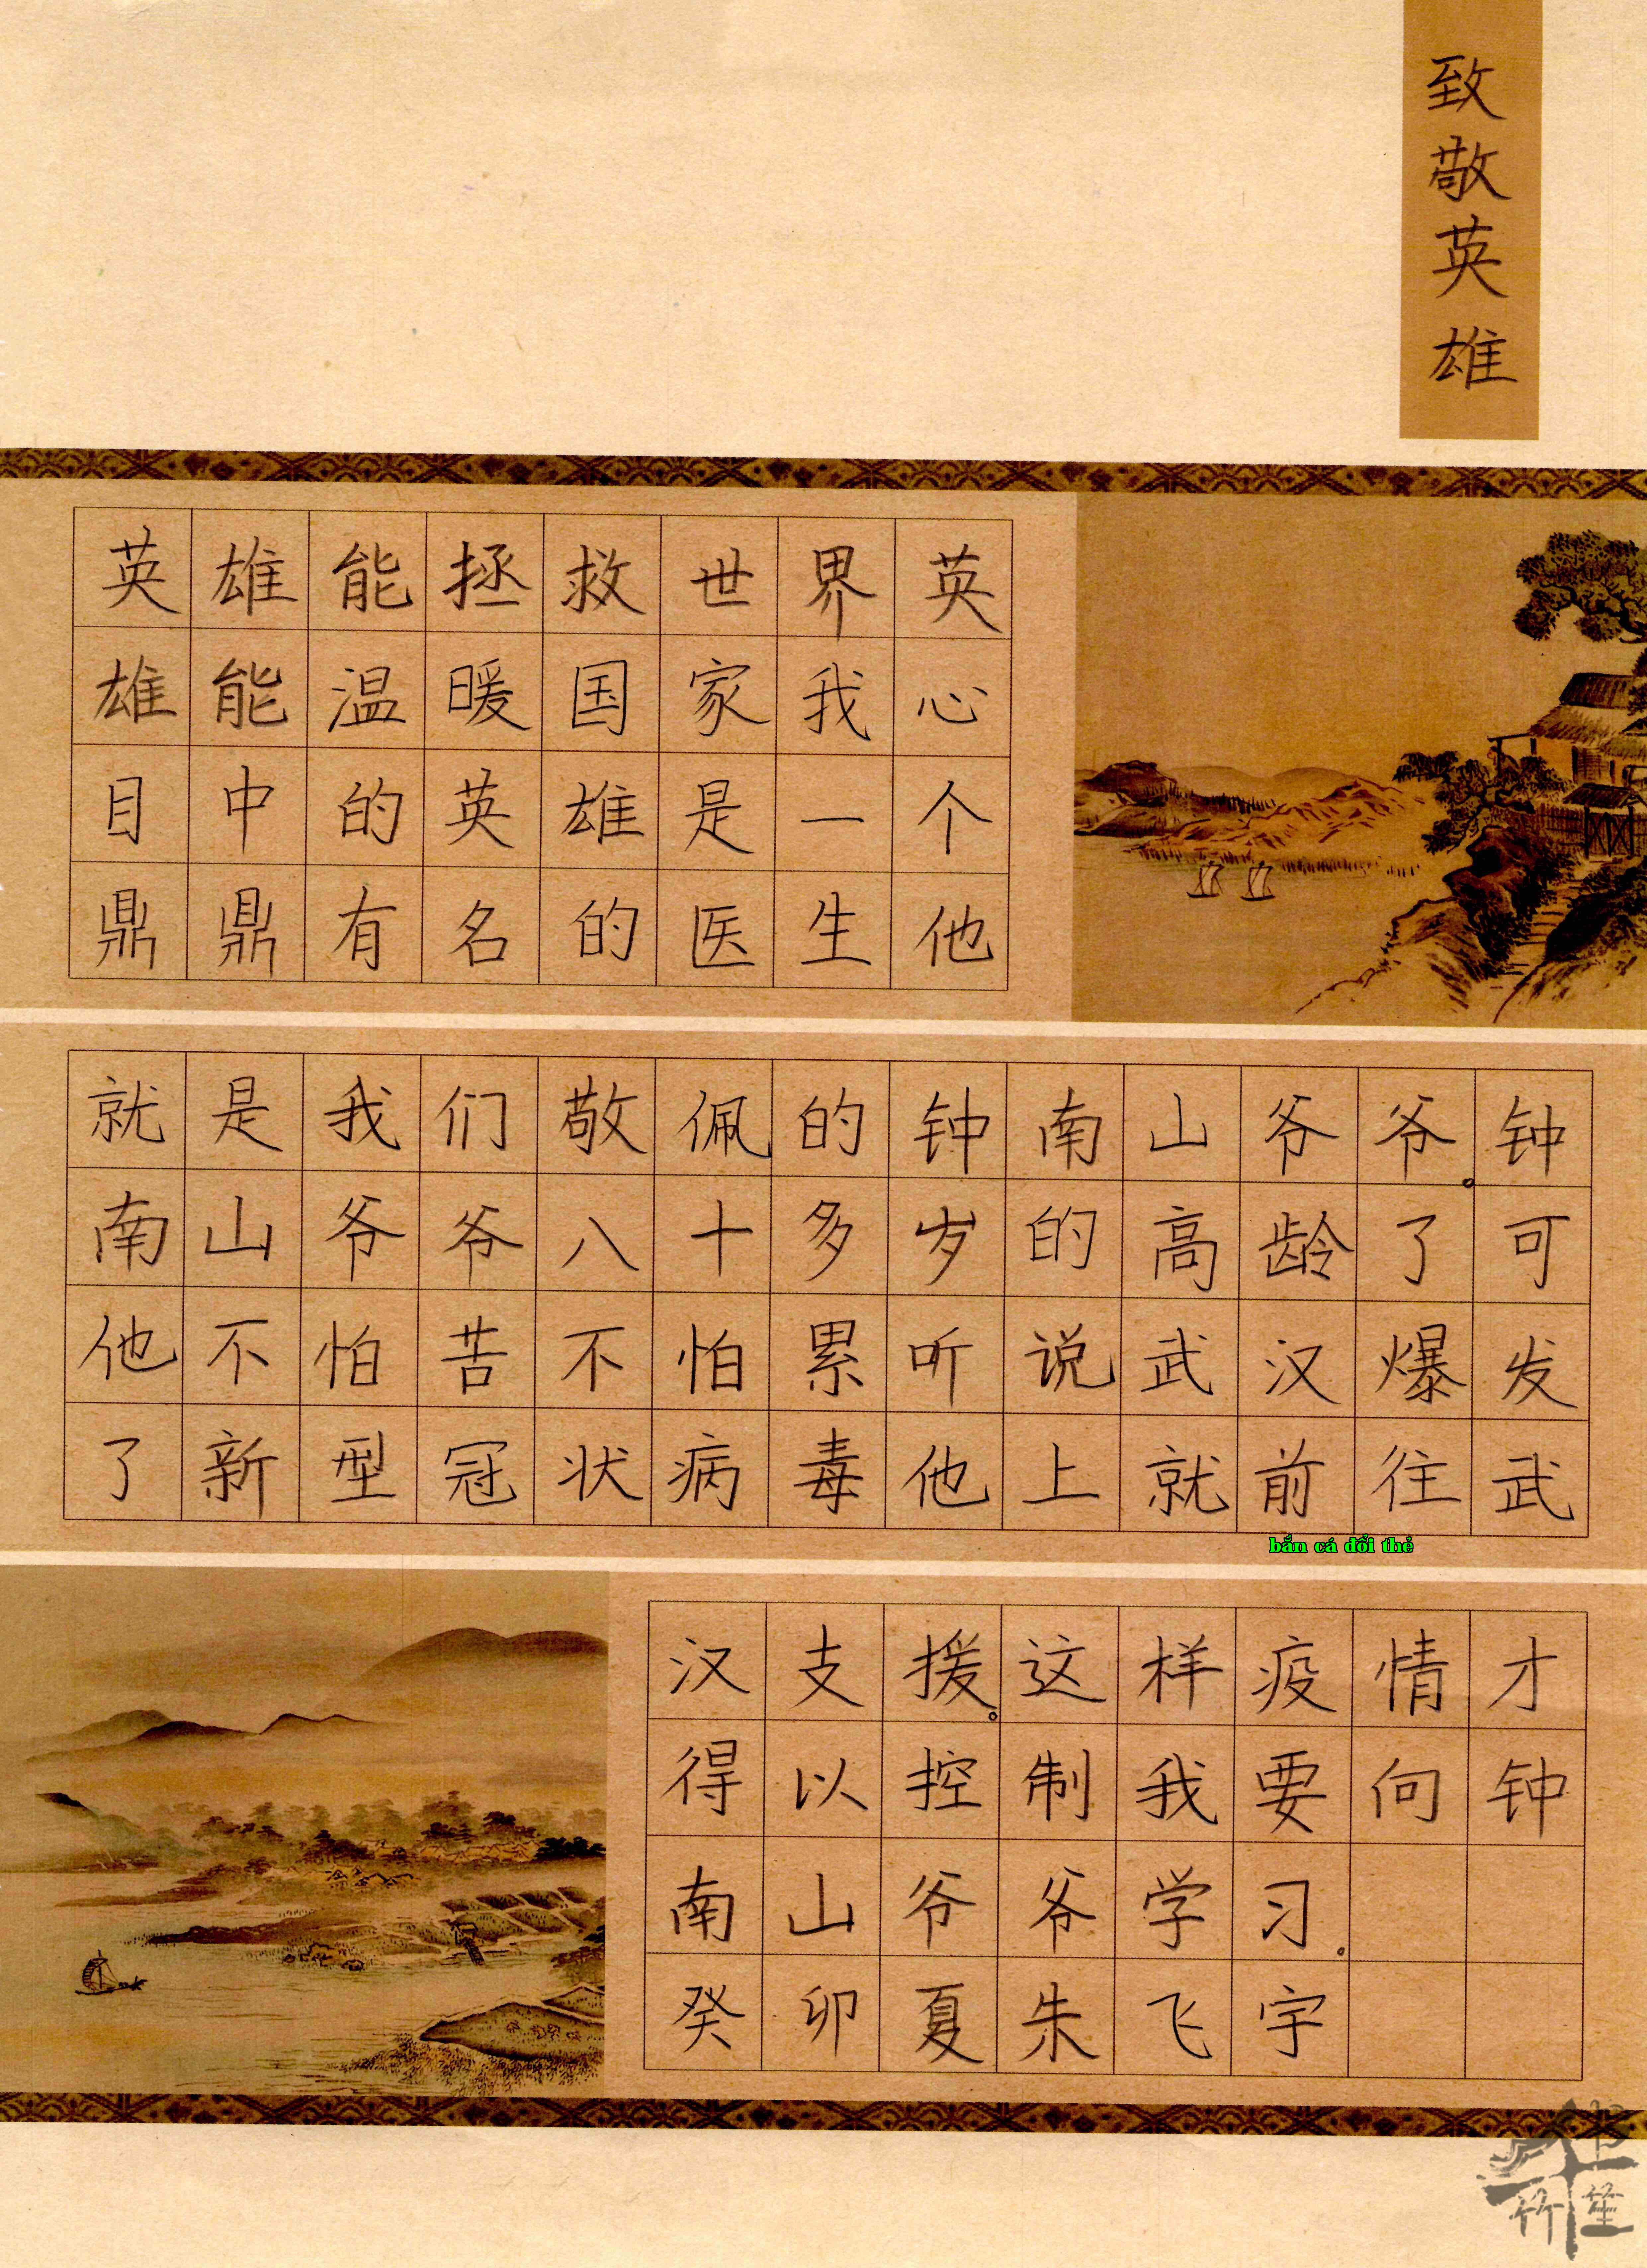 致敬英雄
英雄能拯救世界英
雄能温暖国家我心
目中的英雄是一个
鼎鼎有名的医生他
就是我们敬佩的钟南山爷爷。钟
南山爷爷八十多岁的高龄了可
他不怕苦不怕累听说武汉爆发
了新型冠状病毒他上就前往武
bắn cá đổi thẻ
汉支援。这样疫情才
得以控制我要向钟
南山爷爷学习。
癸卯夏朱飞宇